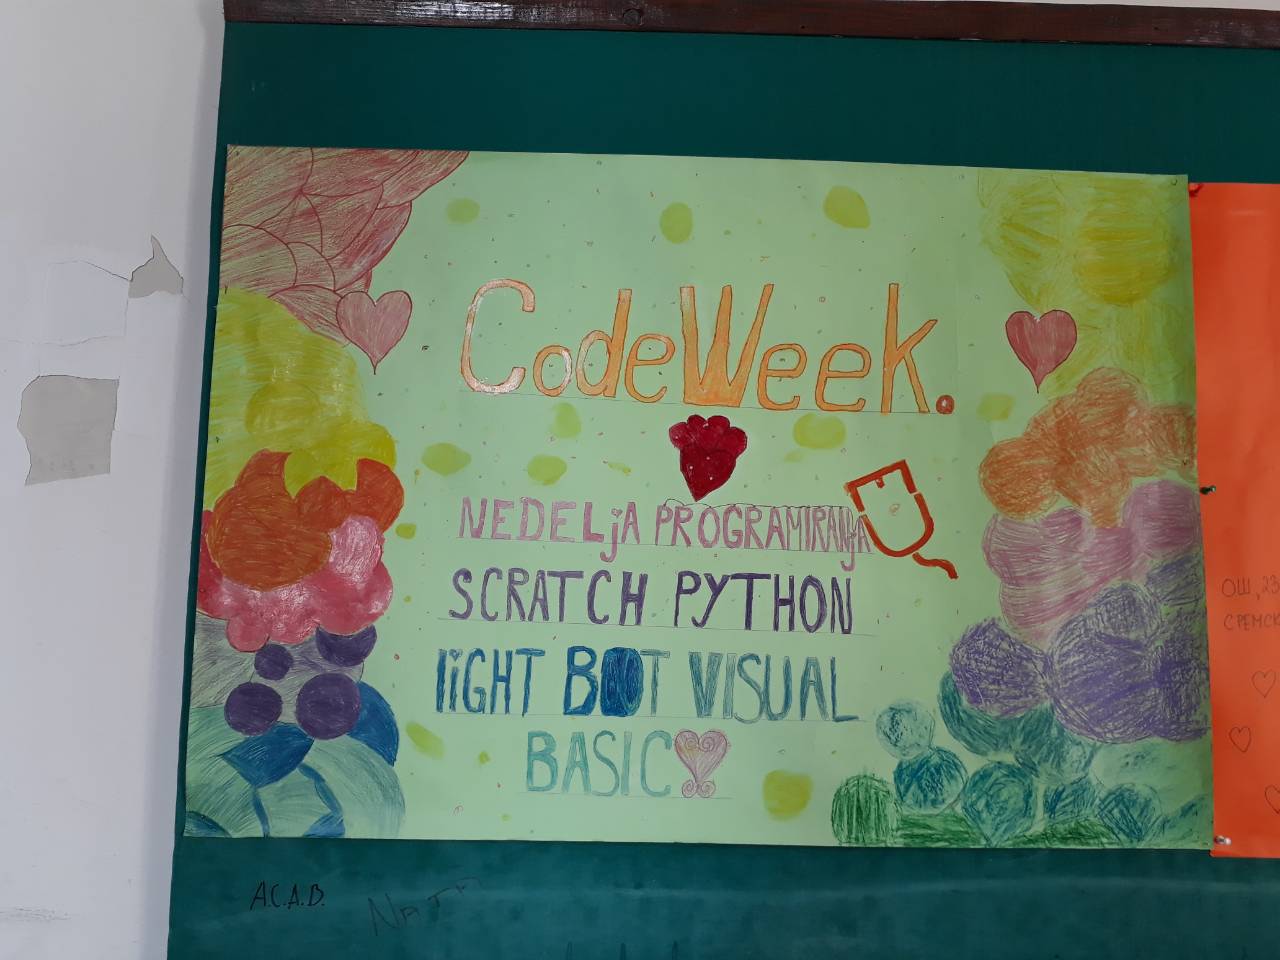 CodeWeek.
NEDELjA PROGRAMIRANjA
SCRATCH PYTHON
lIGHT BOT VISUAL
BASIC
ОШ „23
СРЕМСК
A.C.A.B.